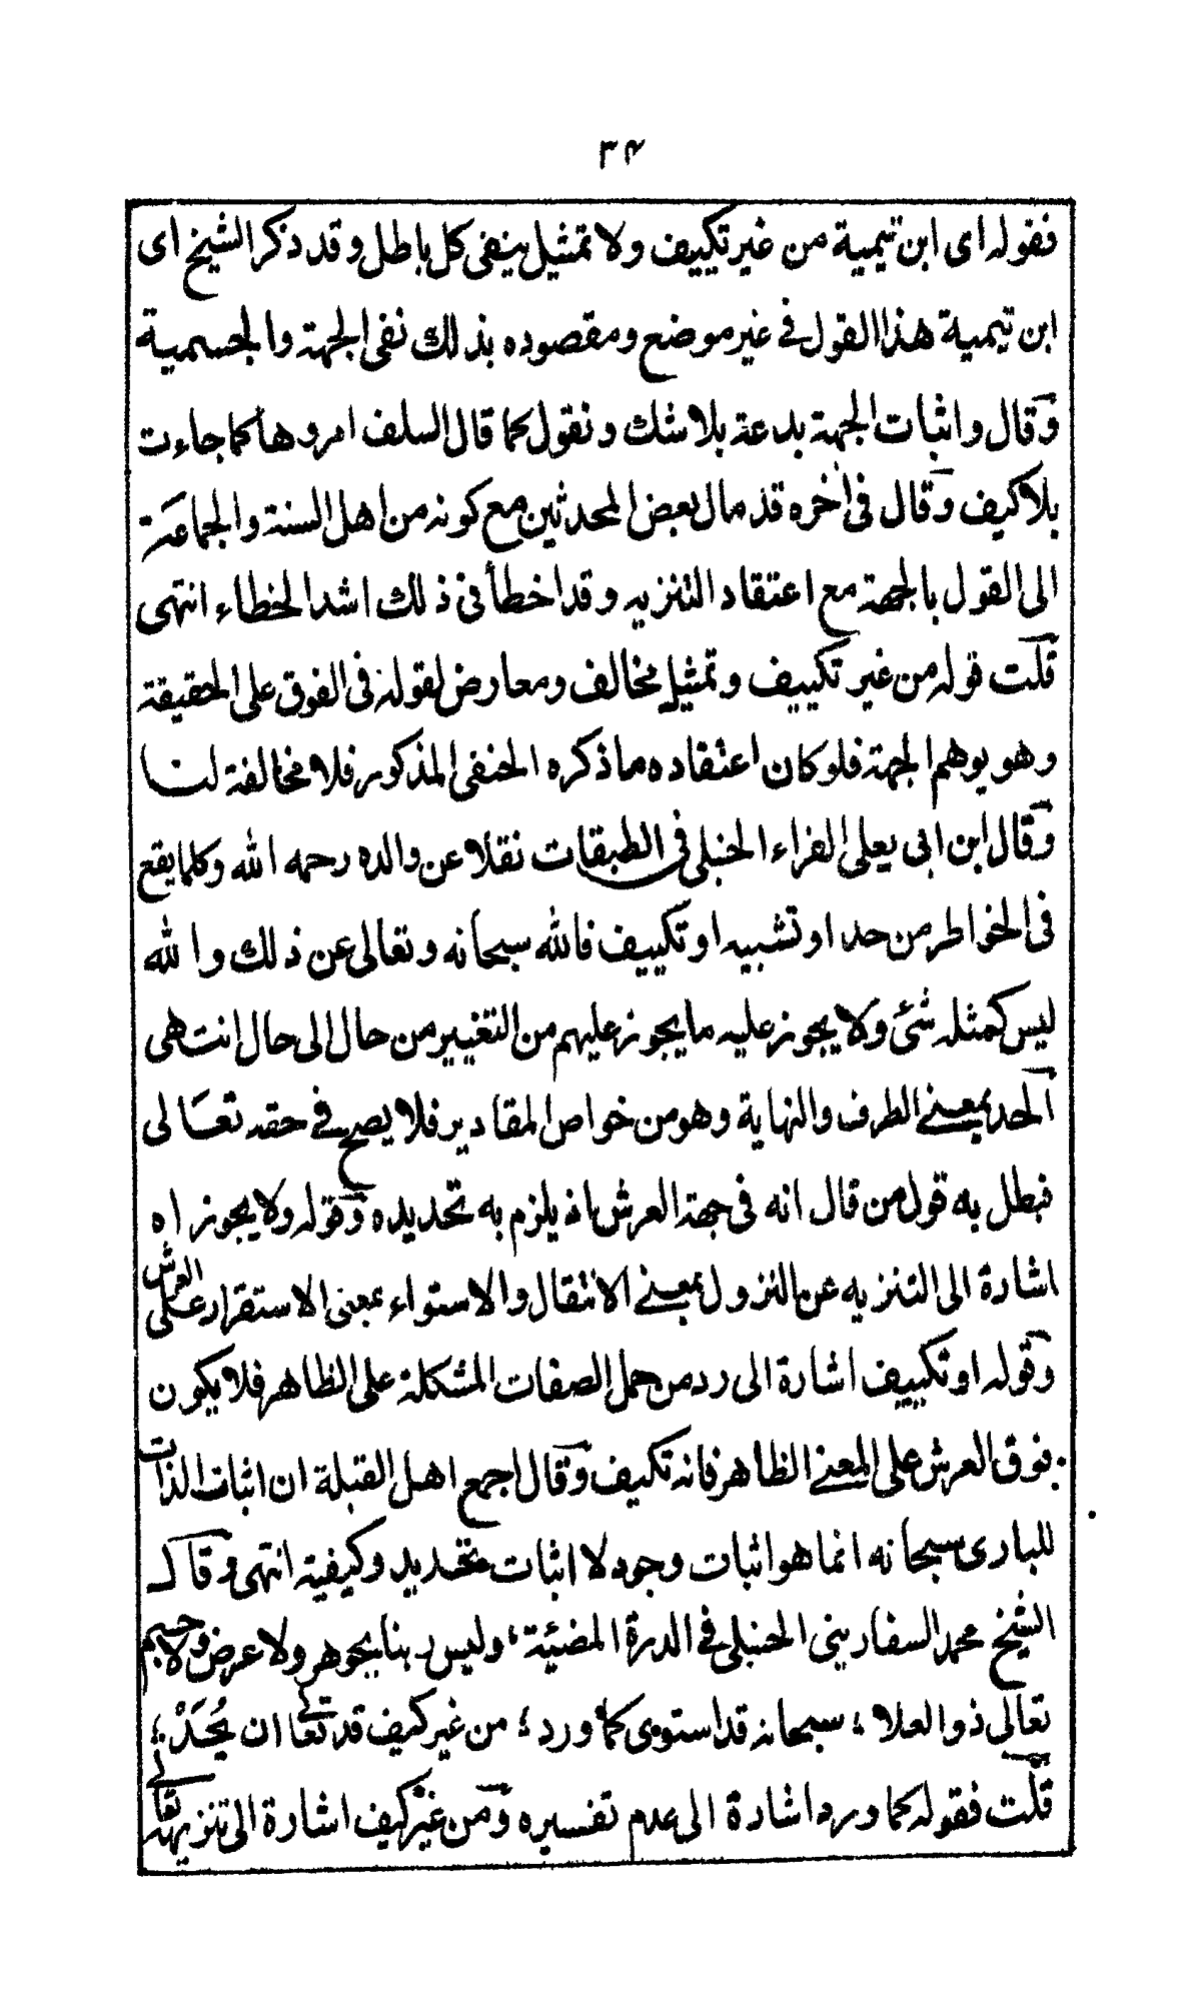 ۳۴
فقوله اى ابن تيمية من غير تكييف ولا تمثيل ينفى كل باطل وقد ذكر الشيخ اى
ابن تيمية هذا القول فى غير موضع ومقصوده بذلك نفى الجهة والجسمية
وقال واثبات الجهة بدعة بلا شك ونقول كما قال السلف امروها كما جاءت
بلا كيف وقال فى اخره قد مال بعض المحدثين مع كونه من اهل السنة والجماعة
الى القول بالجهة مع اعتقاد التنزيه وقد اخطأ فى ذلك اشد الخطاء انتهى
قلت قوله من غير تكييف وتمثيل مخالف ومعارض لقوله فى الفوق على الحقيقة
وهو يوهم الجهة فلو كان اعتقاده ما ذكره الحنفى المذكور فلا مخالفة لنا
وقال ابن ابى يعلى الفراء الحنبلى فى الطبقات نقلا عن والده رحمه الله وكلما يقع
فى الخواطر من حد او تشبيه او تكييف فالله سبحانه وتعالى عن ذلك والله
ليس كمثله شئ ولا يجوز عليه ما يجوز عليهم من التغيير من حال الى حال انتهى
الحد بمعنے الطرف والنهاية وهو من خواص المقادير فلا يصح فے حقه تعالى
فبطل به قول من قال انه فى جهة العرش اذ يلزم به تحديده وقوله ولا يجوز اه
اشارة الى التنزيه عن النزول بمعنے الانتقال والاستواء بمعنى الاستقرار على العرش
وقوله او تكييف اشارة الى رد من حمل الصفات المشكلة على الظاهر فلا يكون
فوق العرش على المعنے الظاهر فانه تكيف وقال اجمع اهل القبلة ان اثبات الذات
للبارى سبحانه انما هو اثبات وجود لا اثبات تحديد وكيفية انتهى وقال
الشيخ محمد السفارينى الحنبلى فے الدرة المضيئة، وليس ربنا بجوهر ولا عرض ولا جسم
تعالى ذو العلا ؛ سبحانه قد استوى كما ورد ؛ من غير كيف قد تعالے ان يُحَدّ ؛
قلت فقوله كما ورد اشارة الى عدم تفسيره ومن غير كيف اشارة الى تنزيهه تعالے